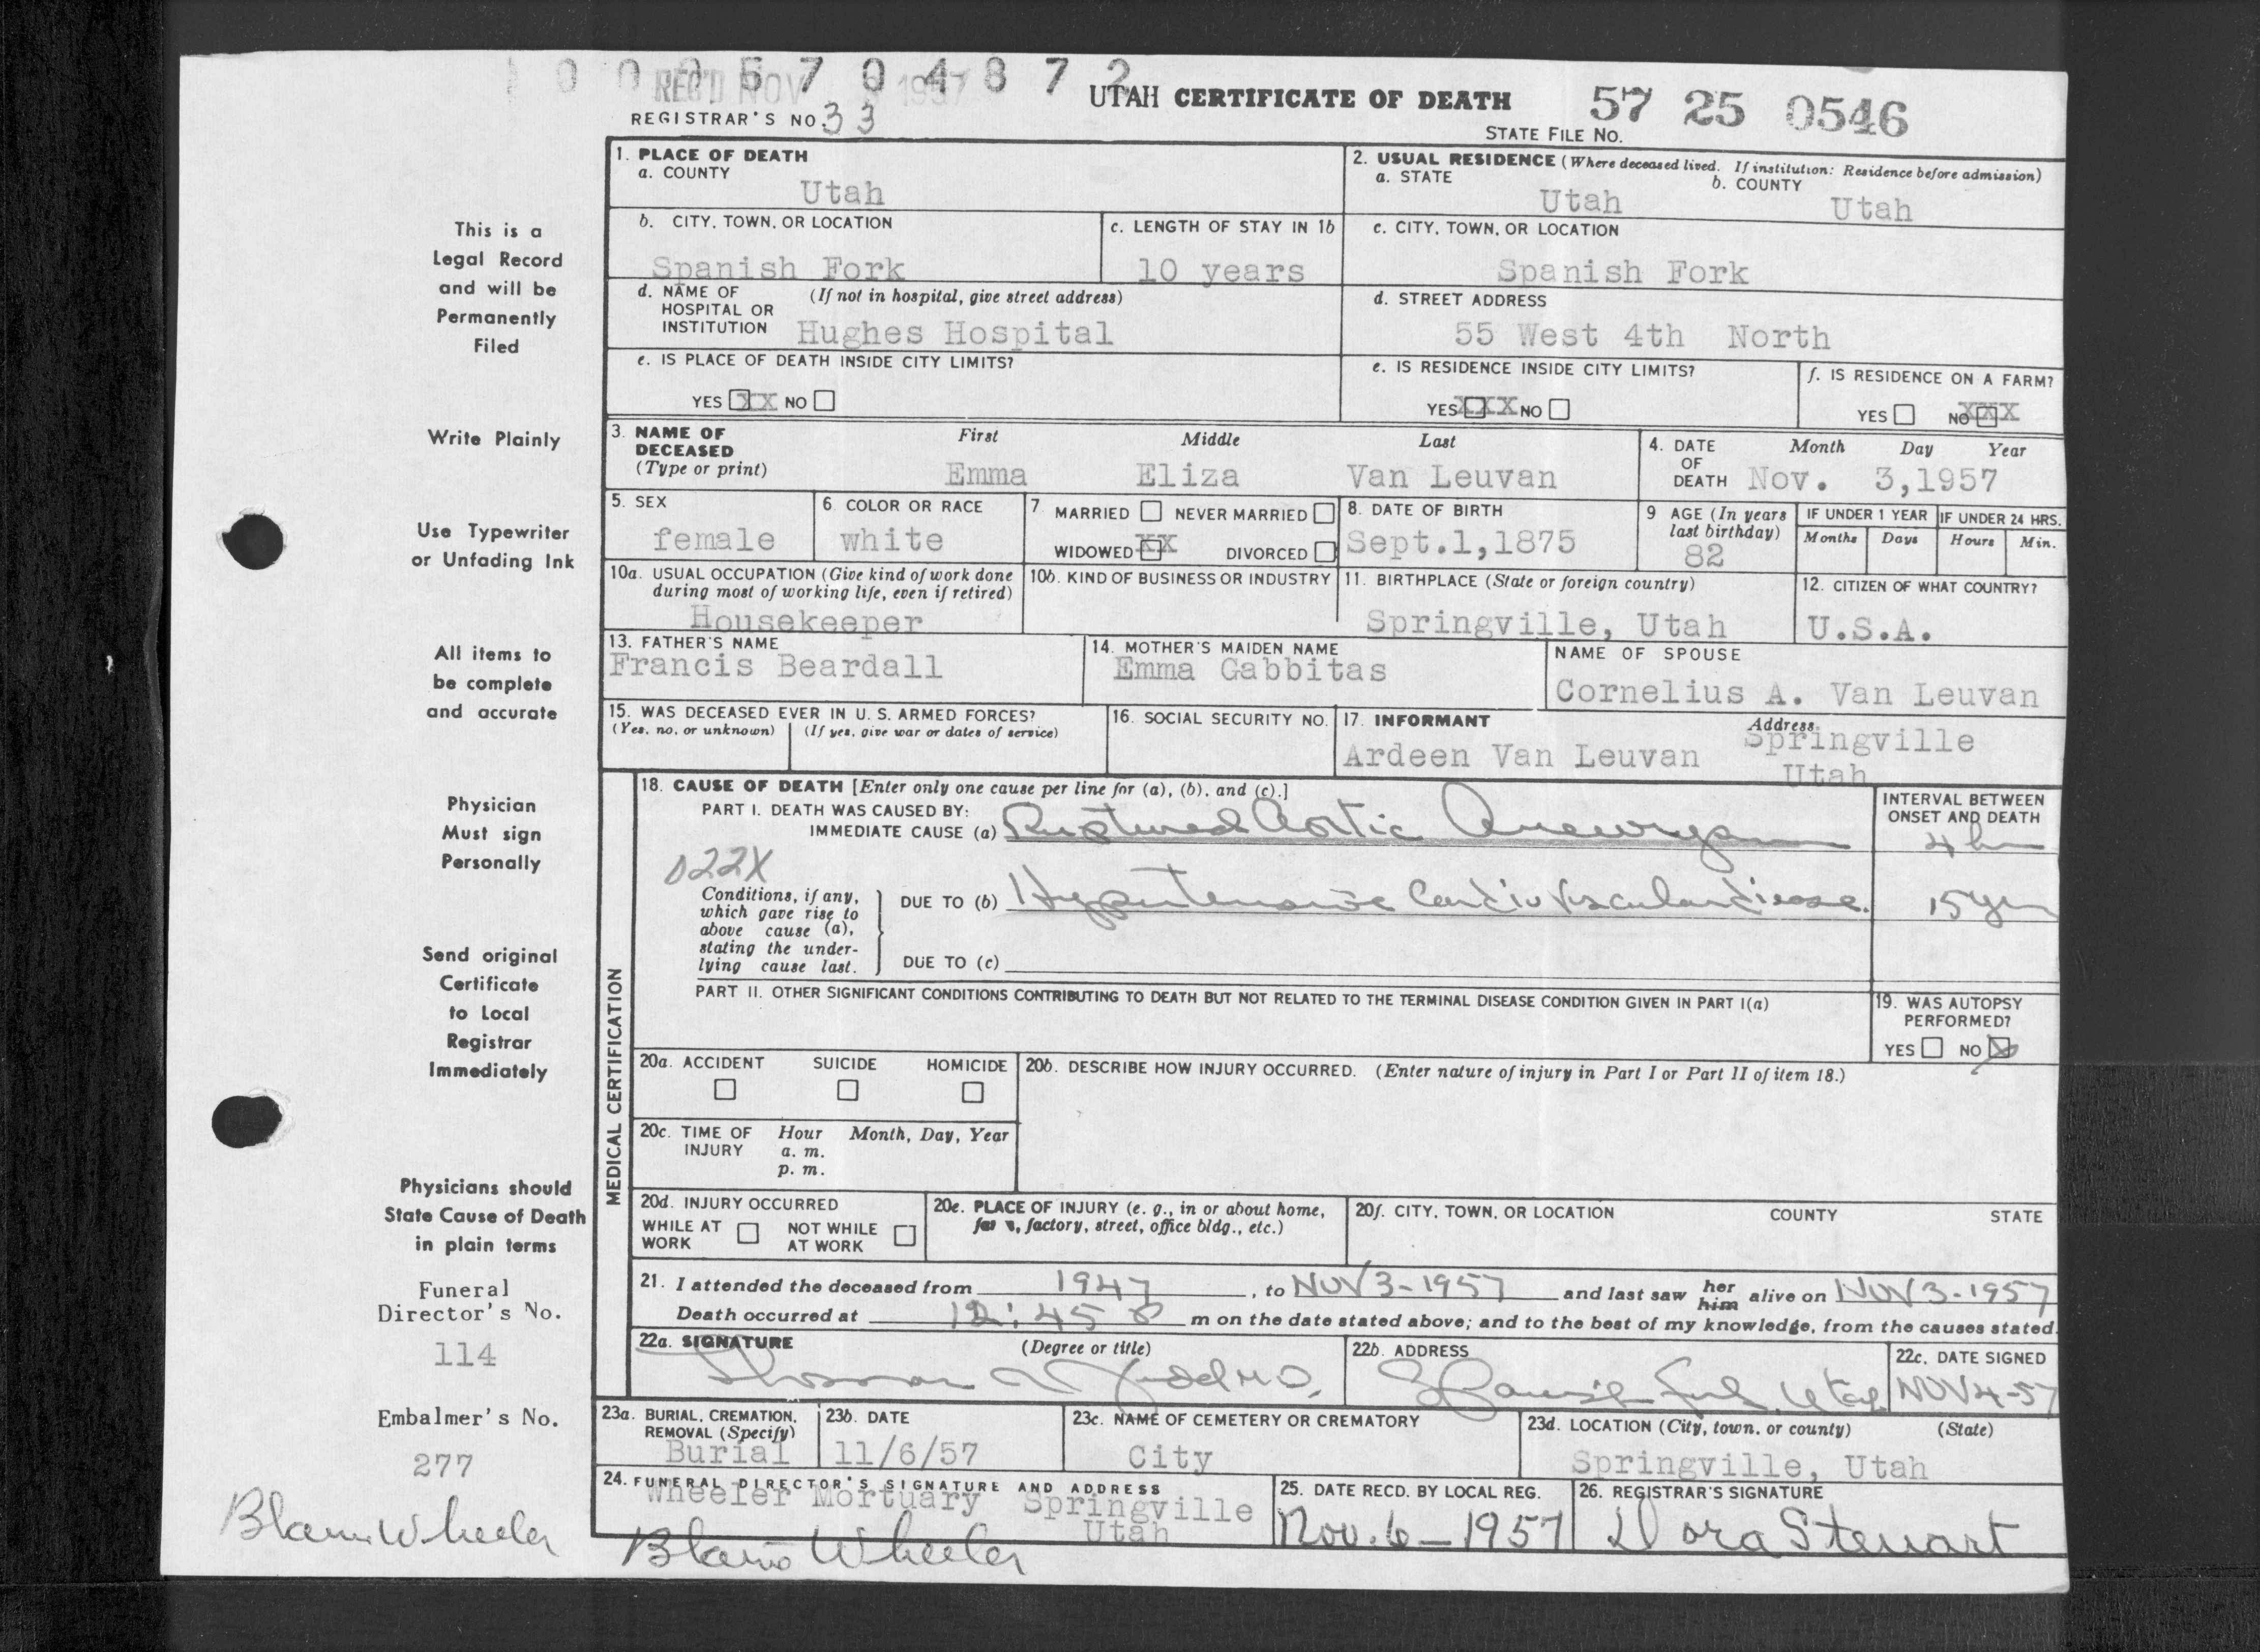 0 0 0 5 7 0 4 8 7 2
REC'D NOV 1957
UTAH CERTIFICATE OF DEATH
57 25 0546
REGISTRAR'S NO. 33
STATE FILE NO.
This is a
Legal Record
and will be
Permanently
Filed
Write Plainly
Use Typewriter
or Unfading Ink
All items to
be complete
and accurate
Physician
Must sign
Personally
Send original
Certificate
to Local
Registrar
Immediately
Physicians should
State Cause of Death
in plain terms
Funeral
Director's No.
114
Embalmer's No.
277
Blaine Wheeler
1. PLACE OF DEATH
a. COUNTY
Utah
2. USUAL RESIDENCE (Where deceased lived. If institution: Residence before admission)
a. STATE
Utah
b. COUNTY
Utah
b. CITY, TOWN, OR LOCATION
Spanish Fork
c. LENGTH OF STAY IN 1b
10 years
c. CITY, TOWN, OR LOCATION
Spanish Fork
d. NAME OF (If not in hospital, give street address)
HOSPITAL OR
INSTITUTION Hughes Hospital
d. STREET ADDRESS
55 West 4th North
e. IS PLACE OF DEATH INSIDE CITY LIMITS?
YES XX NO
e. IS RESIDENCE INSIDE CITY LIMITS?
YES XXX NO
f. IS RESIDENCE ON A FARM?
YES NO XXX
3. NAME OF DECEASED
(Type or print)
First Middle Last
Emma Eliza Van Leuvan
4. DATE OF DEATH
Month Day Year
Nov. 3,1957
5. SEX
female
6. COLOR OR RACE
white
7. MARRIED NEVER MARRIED
WIDOWED XX DIVORCED
8. DATE OF BIRTH
Sept.1,1875
9. AGE (In years
last birthday)
82
IF UNDER 1 YEAR
Months Days
IF UNDER 24 HRS.
Hours Min.
10a. USUAL OCCUPATION (Give kind of work done
during most of working life, even if retired)
Housekeeper
10b. KIND OF BUSINESS OR INDUSTRY
11. BIRTHPLACE (State or foreign country)
Springville, Utah
12. CITIZEN OF WHAT COUNTRY?
U.S.A.
13. FATHER'S NAME
Francis Beardall
14. MOTHER'S MAIDEN NAME
Emma Gabbitas
NAME OF SPOUSE
Cornelius A. Van Leuvan
15. WAS DECEASED EVER IN U. S. ARMED FORCES?
(Yes, no, or unknown) (If yes, give war or dates of service)
16. SOCIAL SECURITY NO.
17. INFORMANT Address
Ardeen Van Leuvan Springville
Utah
MEDICAL CERTIFICATION
18. CAUSE OF DEATH [Enter only one cause per line for (a), (b), and (c).]
PART I. DEATH WAS CAUSED BY:
IMMEDIATE CAUSE (a) Ruptured Aortic Aneurysm
INTERVAL BETWEEN
ONSET AND DEATH
4 hr
022X
Conditions, if any,
which gave rise to
above cause (a),
stating the under-
lying cause last.
DUE TO (b) Hypertensive Cardio Vascular disease.
15 yrs
DUE TO (c)
PART II. OTHER SIGNIFICANT CONDITIONS CONTRIBUTING TO DEATH BUT NOT RELATED TO THE TERMINAL DISEASE CONDITION GIVEN IN PART I(a)
19. WAS AUTOPSY
PERFORMED?
YES NO X
20a. ACCIDENT SUICIDE HOMICIDE
20b. DESCRIBE HOW INJURY OCCURRED. (Enter nature of injury in Part I or Part II of item 18.)
20c. TIME OF INJURY
Hour Month, Day, Year
a. m.
p. m.
20d. INJURY OCCURRED
WHILE AT WORK NOT WHILE AT WORK
20e. PLACE OF INJURY (e. g., in or about home,
factory, street, office bldg., etc.)
20f. CITY, TOWN, OR LOCATION COUNTY STATE
21. I attended the deceased from 1947, to NOV 3-1957 and last saw her him alive on NOV 3-1957
Death occurred at 12:45 P m on the date stated above; and to the best of my knowledge, from the causes stated.
22a. SIGNATURE (Degree or title)
M.D.
22b. ADDRESS
Spanish Fork, Utah
22c. DATE SIGNED
NOV 4-57
23a. BURIAL, CREMATION,
REMOVAL (Specify)
Burial
23b. DATE
11/6/57
23c. NAME OF CEMETERY OR CREMATORY
City
23d. LOCATION (City, town, or county) (State)
Springville, Utah
24. FUNERAL DIRECTOR'S SIGNATURE AND ADDRESS
Wheeler Mortuary Springville
Utah
Blaine Wheeler
25. DATE RECD. BY LOCAL REG.
Nov. 6-1957
26. REGISTRAR'S SIGNATURE
Dora Stewart